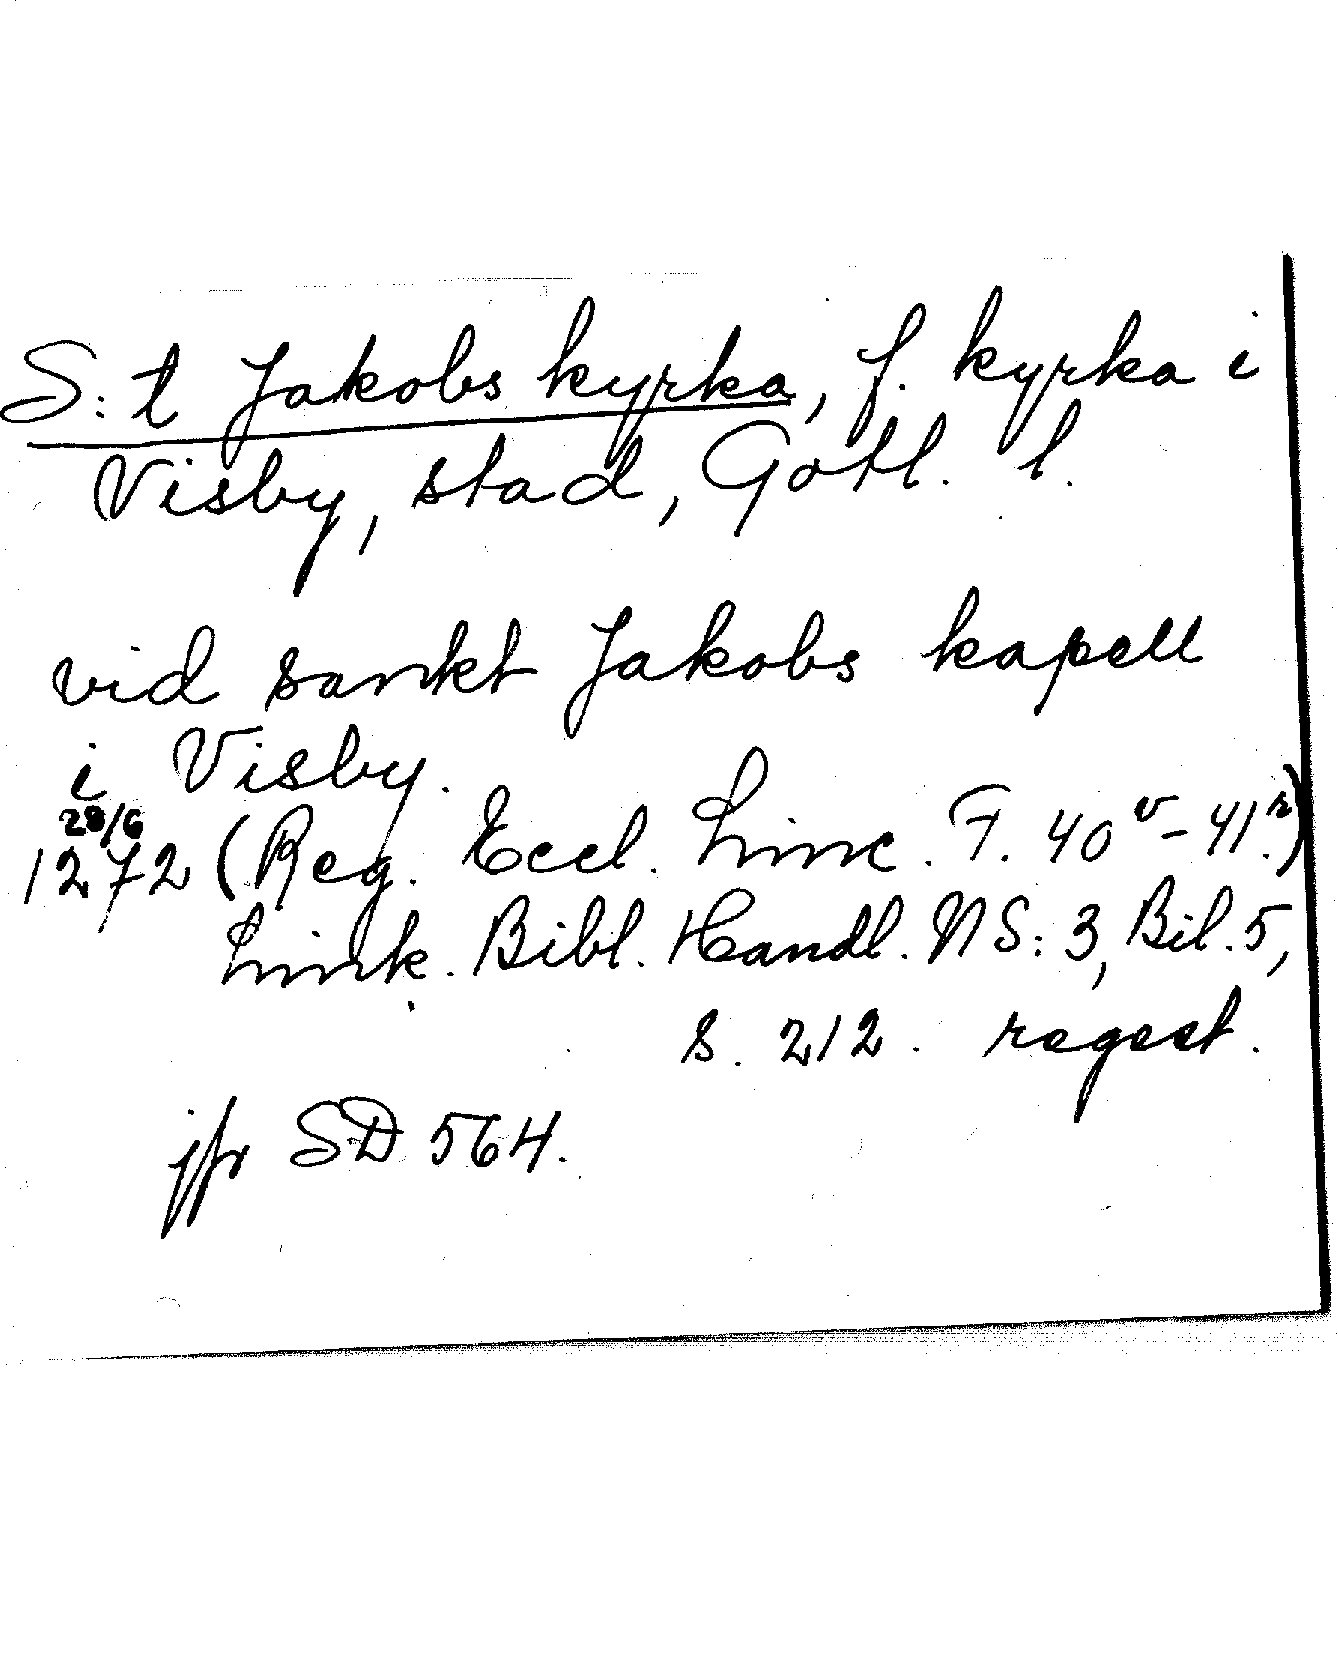 S:t Jakobs kyrka, f. kyrka i
Visby, stad, Gotl. l.
vid sankt Jakobs kapell
i Visby.
28/6
1272 (Reg. Eccl. Linc. F. 40v - 41r.)
Link. Bibl. Handl. NS: 3, Bil. 5,
s. 212. regest.
jfr SD 564.